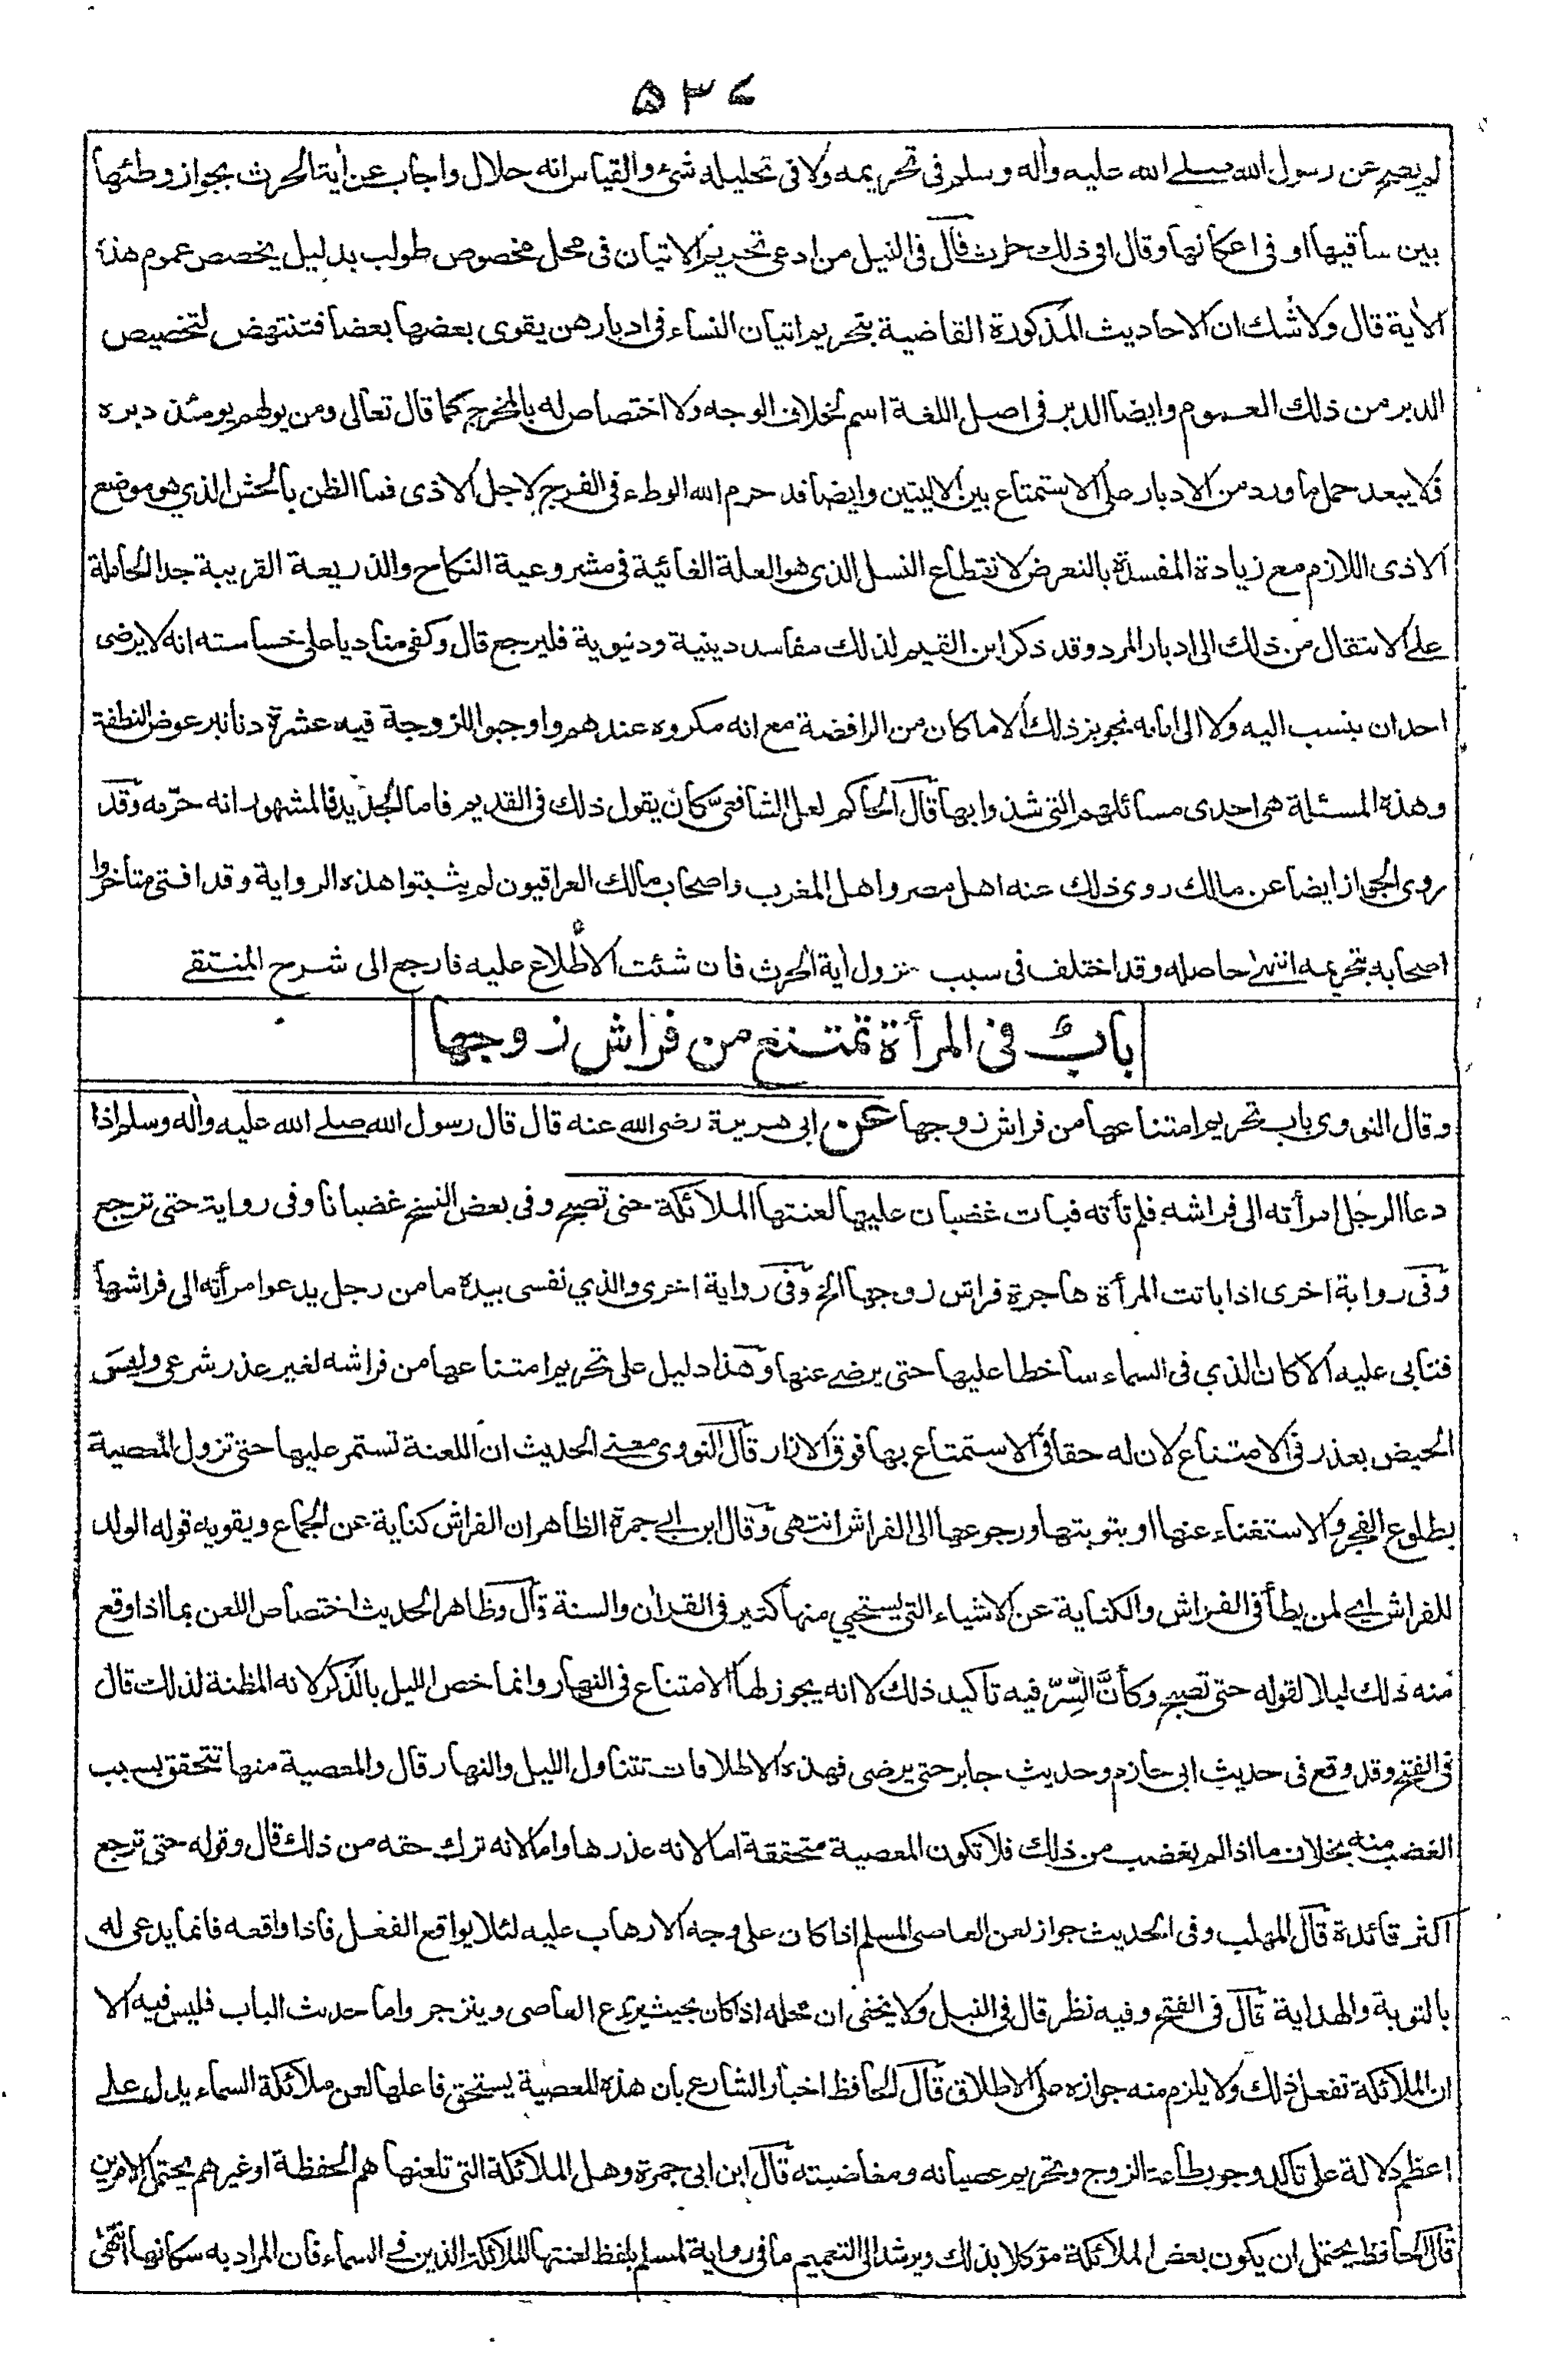 ۵۳۷
لم يصح عن رسول الله صلے الله عليه واٰله وسلم فى تحريمه ولا فى تحليله شئ والقياس انه حلال واجاب عن اٰية الحرث بجواز وطئها
بين ساقيها او فى اعكانها وقال افى ذلك حرث قال فى النيل من ادعى تحريم الاتيان فى محل مخصوص طولب بدليل يخصص عموم هذه
الاٰية قال ولا شك ان الاحاديث المذكورة القاضية بتحريم اتيان النساء فى ادبارهن يقوى بعضها بعضا فتنتهض لتخصيص
الدبر من ذلك العموم وايضا الدبر فى اصل اللغة اسم لخلاف الوجه ولا اختصاص له بالمخرج كما قال تعالى ومن يولهم يومئذ دبره
فلا يبعد حمل ما ورد من الادبار على الاستمتاع بين الاليتين وايضا قد حرم الله الوطء فى الفرج لاجل الاذى فما الظن بالحش الذي هو موضع
الاذى اللازم مع زيادة المفسدة بالتعرض لانقطاع النسل الذى هو العلة الغائية فى مشروعية النكاح والذريعة القريبة جدا الحاملة
على الانتقال من ذلك الى ادبار المرد وقد ذكر ابن القيم لذلك مفاسد دينية ودنيوية فليرجع قال وكفى مناديا على خساسته انه لا يرضى
احد ان ينسب اليه ولا الى امامه تجويز ذلك الا ما كان من الرافضة مع انه مكروه عندهم واوجبوا للزوجة فيه عشرة دنانير عوض النطفة
وهذه المسئلة هى احدى مسائلهم التى شذوا بها قال الحاكم لعل الشافعى كان يقول ذلك فى القديم فاما الجديد فالمشهور انه حرّمه وقد
روى الجواز ايضا عن مالك روى ذلك عنه اهل مصر واهل المغرب واصحاب مالك العراقيون لم يثبتوا هذه الرواية وقد افتى متأخروا
اصحابه بتحريمه انتهى حاصله وقد اختلف فى سبب نزول اية الحرث فان شئت الاطلاع عليه فارجع الى شرح المنتقے
باب فى المرأة تمتنع من فراش زوجها
وقال النووى باب تحريم امتناعها من فراش زوجها عن ابى هريرة رضى الله عنه قال قال رسول الله صلے الله عليه واٰله وسلم اذا
دعا الرجل امرأته الى فراشه فلم تأته فبات غضبان عليها لعنتها الملائكة حتى تصبح وفى بعض النسخ غضبانا وفى رواية حتى ترجع
وفى رواية اخرى اذا باتت المرأة هاجرة فراش زوجها الخ وفى رواية اخرى والذي نفسى بيده ما من رجل يدعو امرأته الى فراشها
فتابى عليه الا كان الذي فى السماء ساخطا عليها حتى يرضے عنها وهذا دليل على تحريم امتناعها من فراشه لغير عذر شرعى وليس
الحيض بعذر فى الامتناع لان له حقا فى الاستمتاع بها فوق الازار قال النووى معنے الحديث ان اللعنة تستمر عليها حتى تزول المعصية
بطلوع الفجر والاستغناء عنها او بتوبتها ورجوعها الى الفراش انتهى وقال ابن ابے جمرة الظاهر ان الفراش كناية عن الجماع ويقويه قوله الولد
للفراش اے لمن يطأ فى الفراش والكناية عن الاشياء التى يستحيي منها كثير فى القراٰن والسنة قال وظاهر الحديث اختصاص اللعن بما اذا وقع
منه ذلك ليلا لقوله حتى تصبح وكأنّ السّرّ فيه تاكيد ذلك لا انه يجوز لها الامتناع فى النهار وانما خص الليل بالذكر لانه المظنة لذلك قال
فى الفتح وقد وقع فى حديث ابى حازم وحديث جابر حتى يرضى فهذه الاطلاقات تتناول الليل والنهار قال والمعصية منها تتحقق بسبب
الغضب منه بخلاف ما اذا لم يغضب من ذلك فلا تكون المعصية متحققة اما لانه عذرها واما لانه ترك حقه من ذلك قال وقوله حتى ترجع
اكثر فائدة قال المهلب وفى الحديث جواز لعن العاصى المسلم اذا كان على وجه الارهاب عليه لئلا يواقع الفعل فاذا واقعه فانما يدعى له
بالتوبة والهداية قال فى الفتح وفيه نظر قال فى النيل ولا يخفى ان محله اذا كان بحيث يرتدع العاصى وينزجر واما حديث الباب فليس فيه الا
ان الملائكة تفعل ذلك ولا يلزم منه جوازه على الاطلاق قال الحافظ اخبار الشارع بان هذه المعصية يستحق فاعلها لعن ملائكة السماء يدل على
اعظم دلالة على تأكد وجوب طاعة الزوج وتحريم عصيانه ومغاضبته قال ابن ابى جمرة وهل الملائكة التى تلعنها هم الحفظة او غيرهم يحتمل الامرين
قال الحافظ يحتمل ان يكون بعض الملائكة موكلا بذلك ويرشد الى التعميم ما فى رواية لمسلم بلفظ لعنتها الملائكة الذين فى السماء فان المراد به سكانها انتهى